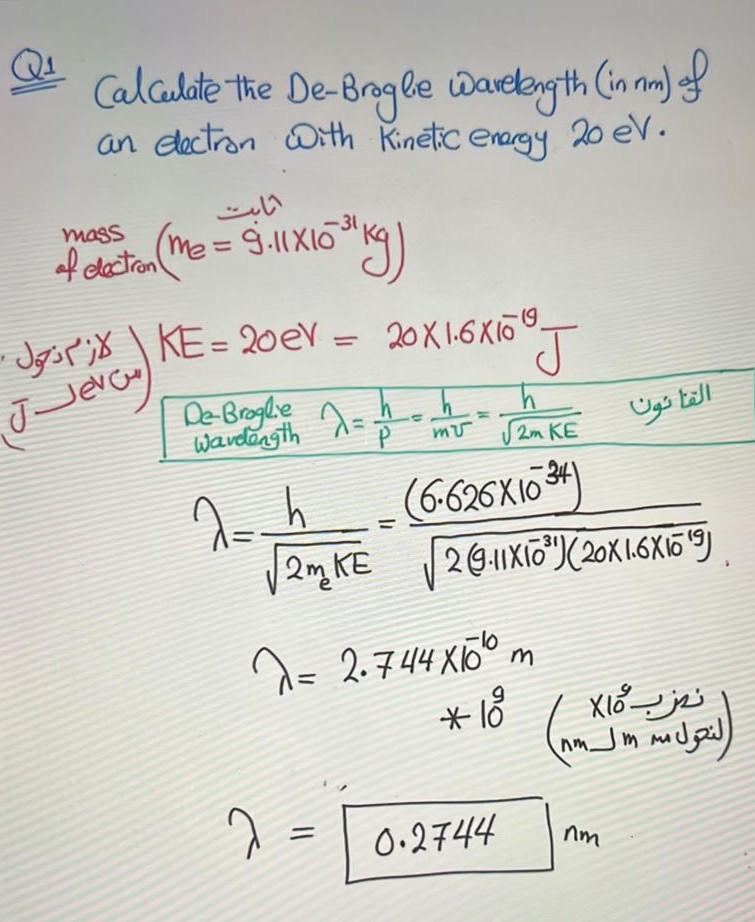 Q1 Calculate the De-Broglie Wavelength (in nm) of
an electron with Kinetic energy 20 eV.
ثابت
mass of electron (me = 9.11X10⁻³¹ Kg)
لازم نحول من eV لـ J) KE = 20 eV = 20 X 1.6 X 10⁻¹⁹ J
De-Broglie Wavelength λ = h/p = h/mv = h/√2m KE القانون
λ = h/√2me KE = (6.626X10⁻³⁴)/√2(9.11X10⁻³¹)(20X1.6X10⁻¹⁹)
λ = 2.744 X10⁻¹⁰ m
* 10⁹
(نضرب X10⁹
لنحول من m لـ nm)
λ = 0.2744 nm